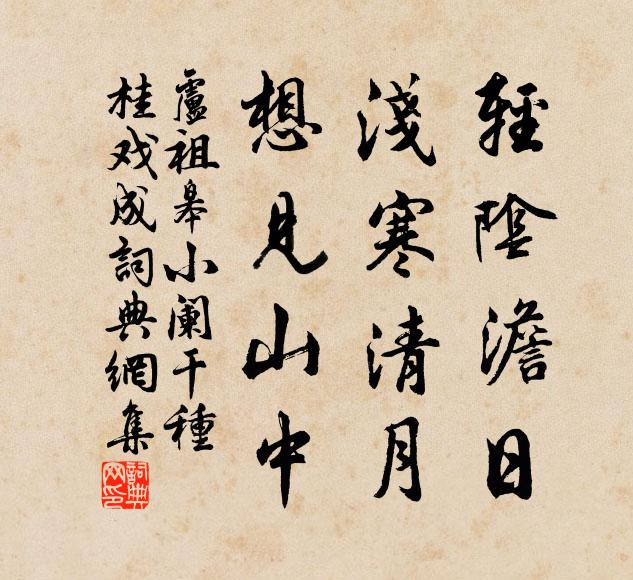 輕陰澹日
淺寒清月
想見山中
盧祖皋小闌干種
桂戏成詞典網集
詞典網印